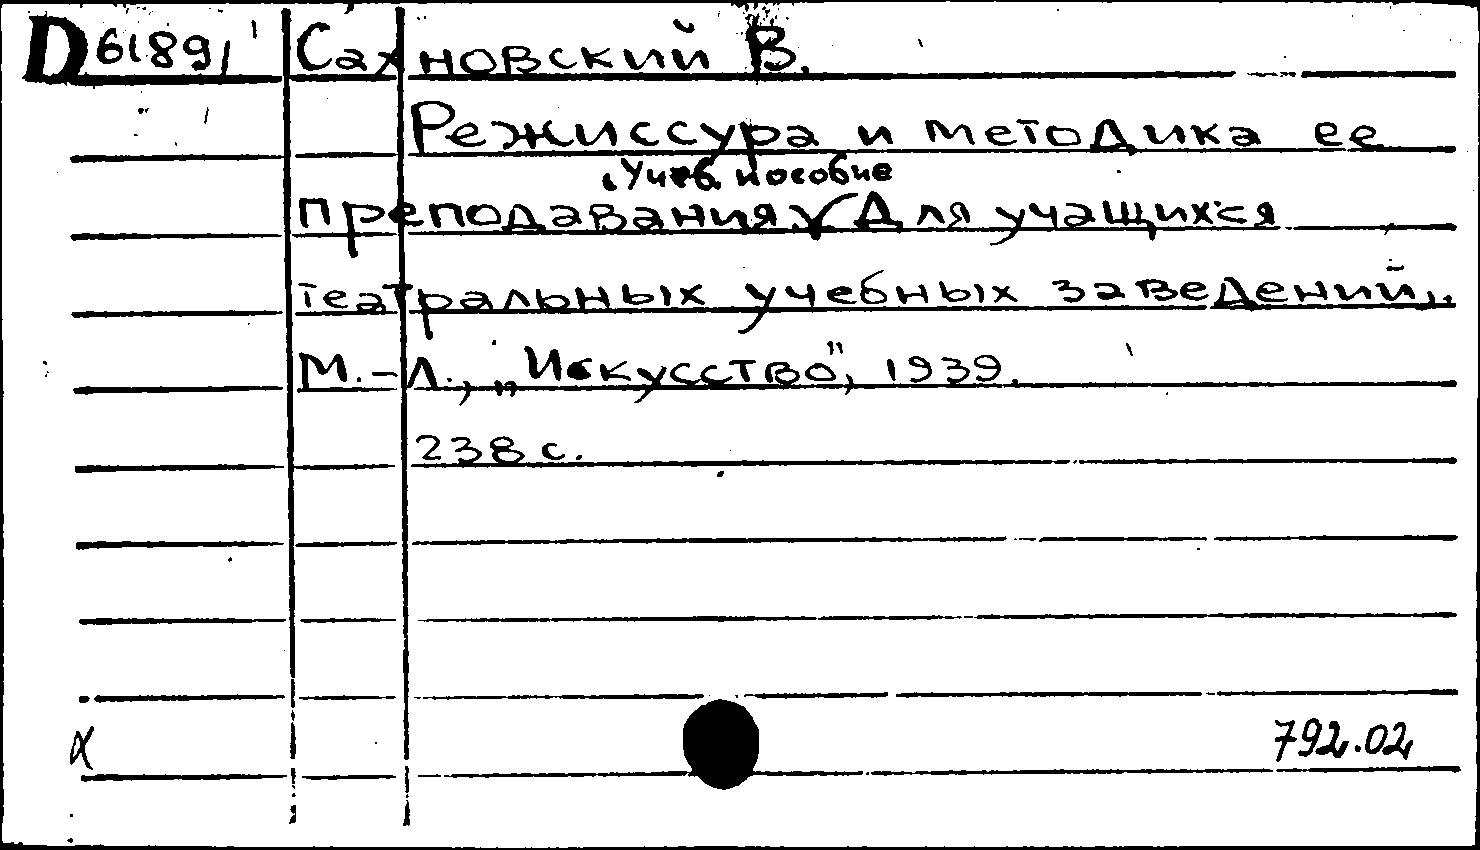 D 6189/ Сахновский В.
Режиссура и методика ее
Учеб. пособие
преподавания. Для учащихся
театральных учебных заведений.
М.-Л., „Искусство", 1939.
238 с.
792.02